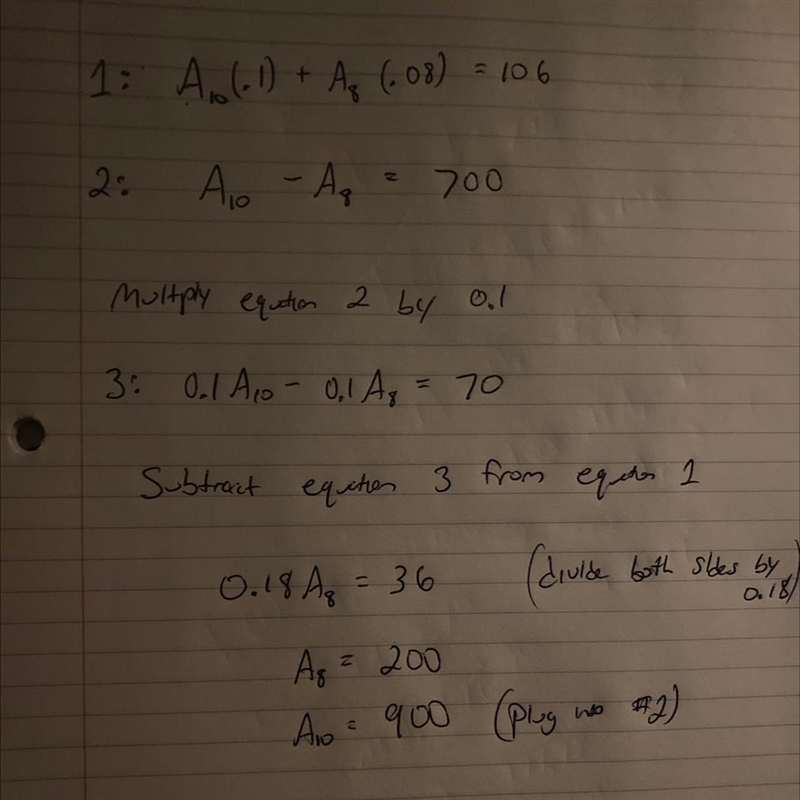 1: A₁₀(.1) + A₈ (.08) = 106
2: A₁₀ - A₈ = 700
Multply equation 2 by 0.1
3: 0.1A₁₀ - 0.1A₈ = 70
Subtract equation 3 from equation 1
0.18A₈ = 36 (divide both sides by
0.18)
A₈ = 200
A₁₀ = 900 (plug #2)